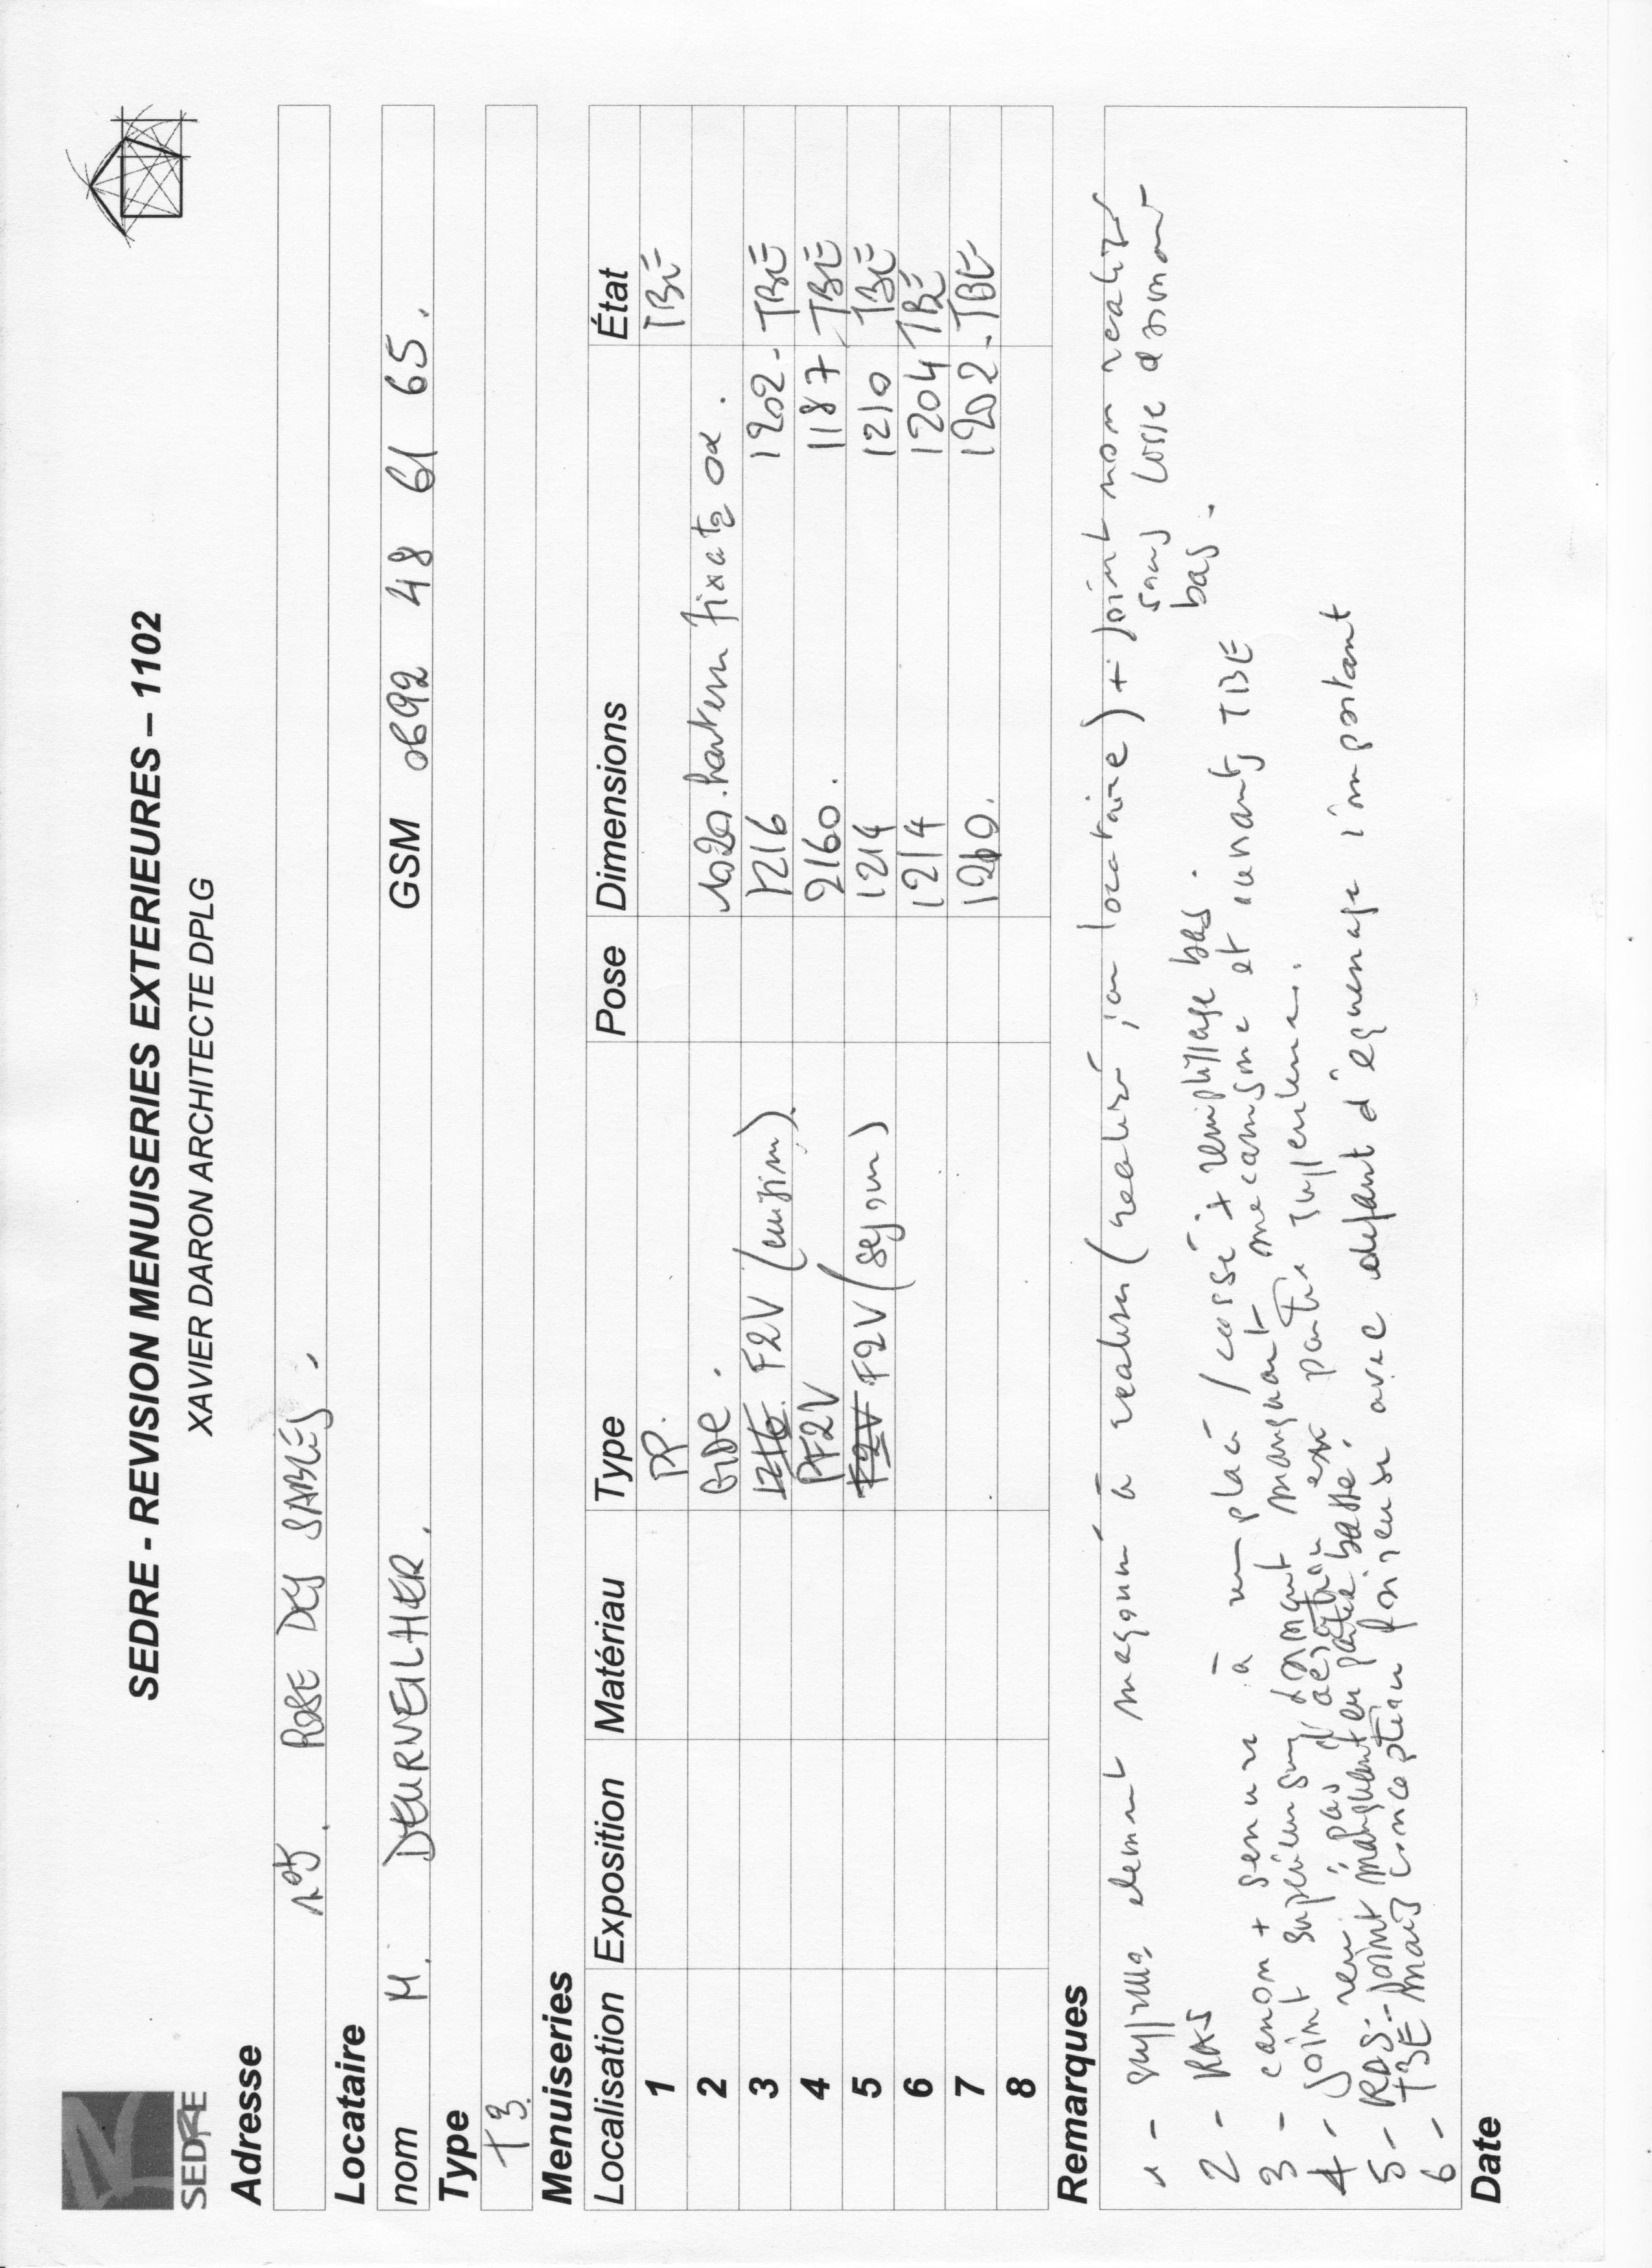 SEDRE
SEDRE - REVISION MENUISERIES EXTERIEURES – 1102
XAVIER DARON ARCHITECTE DPLG
Adresse
ROSE DES SABLES.
Locataire
nom M. DEURVEILHER. GSM 0692 48 61 65.
Type
T3.
Menuiseries
Localisation Exposition Matériau Type Pose Dimensions État
1 PP. TBE
2 hauteur fixate
3 1216. F2V (cuisine). 1216 1202 - TBE
4 PF2V 2160. 1187 TBE
5 F2V F2V (sejour) 1214 1210 TBE
6 1214 1204 TBE
7 1202 - TBE
8
Remarques
1 - element maçonné à realiser (realisé locataire) + joint non realisé
sans dormant
bas.
2 - RAS
3 - canon + serrure à remplacé / cassé + remplissage bas.
4 - joint superieur dormant manquant mecanisme et ouvrants TBE
partie superieure.
5 - RAS - joint manquant en partie basse.
6 - TBE mais conception avec defaut d'equerrage important
Date